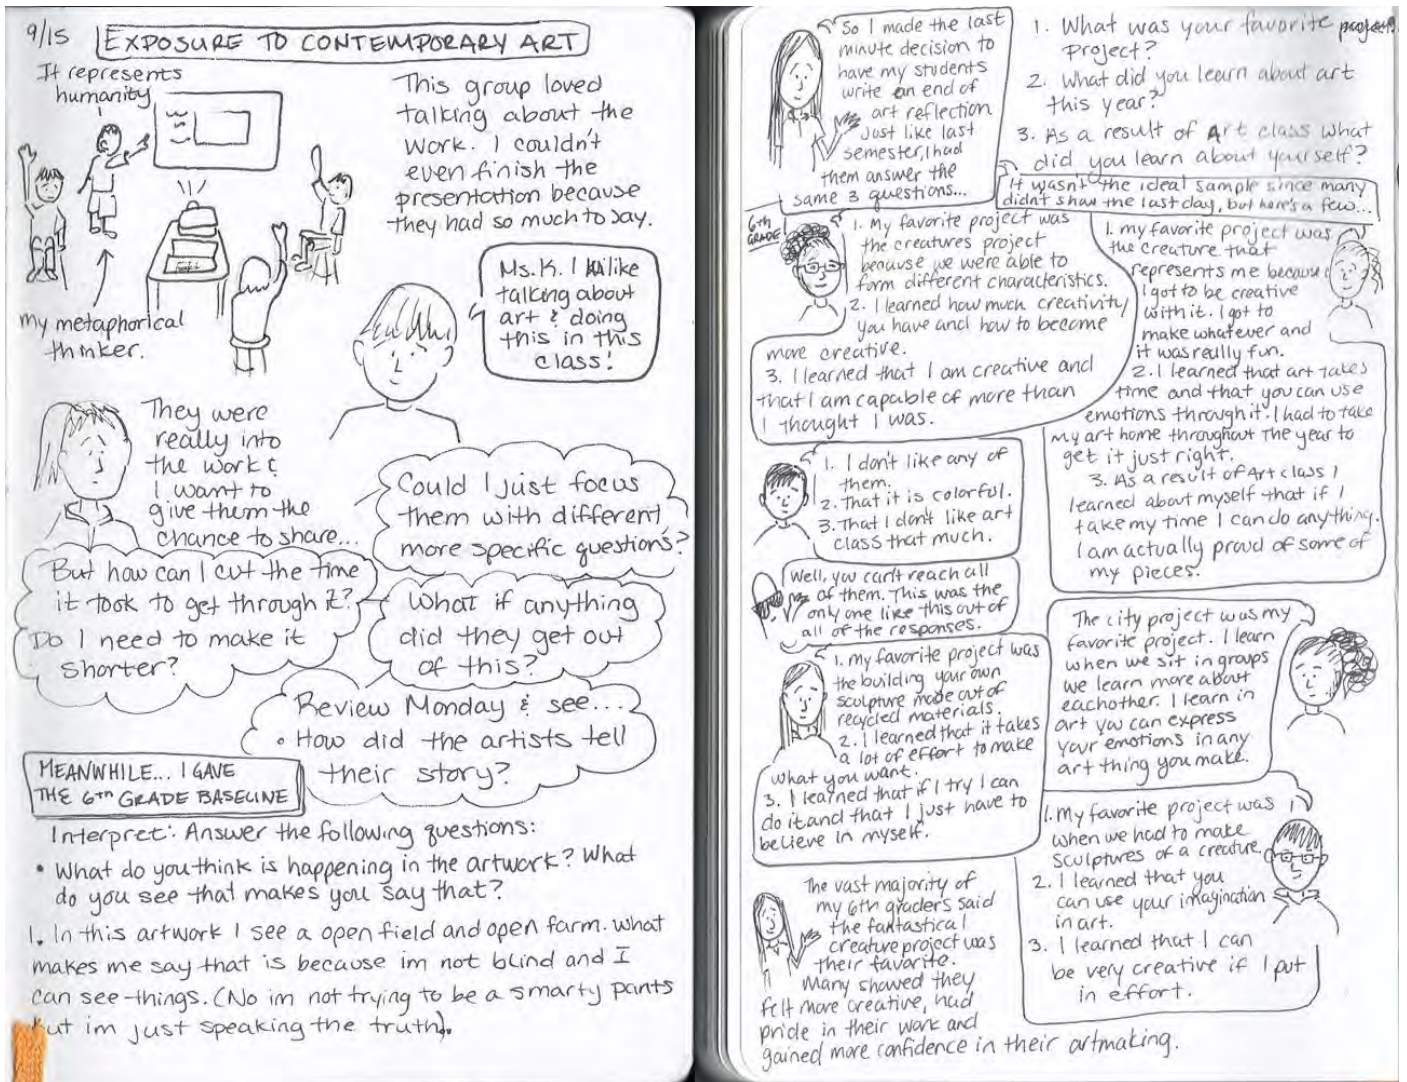 9/15 EXPOSURE TO CONTEMPORARY ART
It represents
humanity
my metaphorical
thinker.
This group loved
talking about the
work. I couldn't
even finish the
presentation because
they had so much to say.
Ms. K. I like
talking about
art & doing
this in this
class!
They were
really into
the work &
I want to
give them the
chance to share...
Could I just focus
them with different
more specific questions?
But how can I cut the time
it took to get through it?
Do I need to make it
shorter?
What if anything
did they get out
of this?
Review Monday & see...
• How did the artists tell
their story?
MEANWHILE... I GAVE
THE 6TH GRADE BASELINE
Interpret: Answer the following questions:
• What do you think is happening in the artwork? What
do you see that makes you say that?
1. In this artwork I see a open field and open farm. what
makes me say that is because im not blind and I
can see things. (No im not trying to be a smarty pants
but im just speaking the truth).
So I made the last
minute decision to
have my students
write an end of
art reflection.
Just like last
semester, I had
them answer the
same 3 questions...
1. What was your favorite project
project?
2. What did you learn about art
this year?
3. As a result of Art class what
did you learn about yourself?
It wasn't the ideal sample since many
didn't show the last day, but here's a few...
6th
GRADE
1. My favorite project was
the creatures project
because we were able to
form different characteristics.
2. I learned how much creativity
you have and how to become
more creative.
3. I learned that I am creative and
that I am capable of more than
I thought I was.
1. my favorite project was
the creature that
represents me because
I got to be creative
with it. I got to
make whatever and
it was really fun.
2. I learned that art takes
time and that you can use
emotions through it. I had to take
my art home throughout the year to
get it just right.
3. As a result of Art class I
learned about myself that if I
take my time I can do anything.
I am actually proud of some of
my pieces.
1. I don't like any of
them.
2. That it is colorful.
3. That I don't like art
class that much.
Well, you can't reach all
of them. This was the
only one like this out of
all of the responses.
1. my favorite project was
the building your own
sculpture made out of
recycled materials.
2. I learned that it takes
a lot of effort to make
what you want.
3. I learned that if I try I can
do it and that I just have to
believe in myself.
The city project was my
favorite project. I learn
when we sit in groups
we learn more about
eachother. I learn in
art you can express
your emotions in any
art thing you make.
1. My favorite project was
when we had to make
sculptures of a creature.
2. I learned that you
can use your imagination
in art.
3. I learned that I can
be very creative if I put
in effort.
The vast majority of
my 6th graders said
the fantastical
creature project was
their favorite.
Many showed they
felt more creative, had
pride in their work and
gained more confidence in their artmaking.